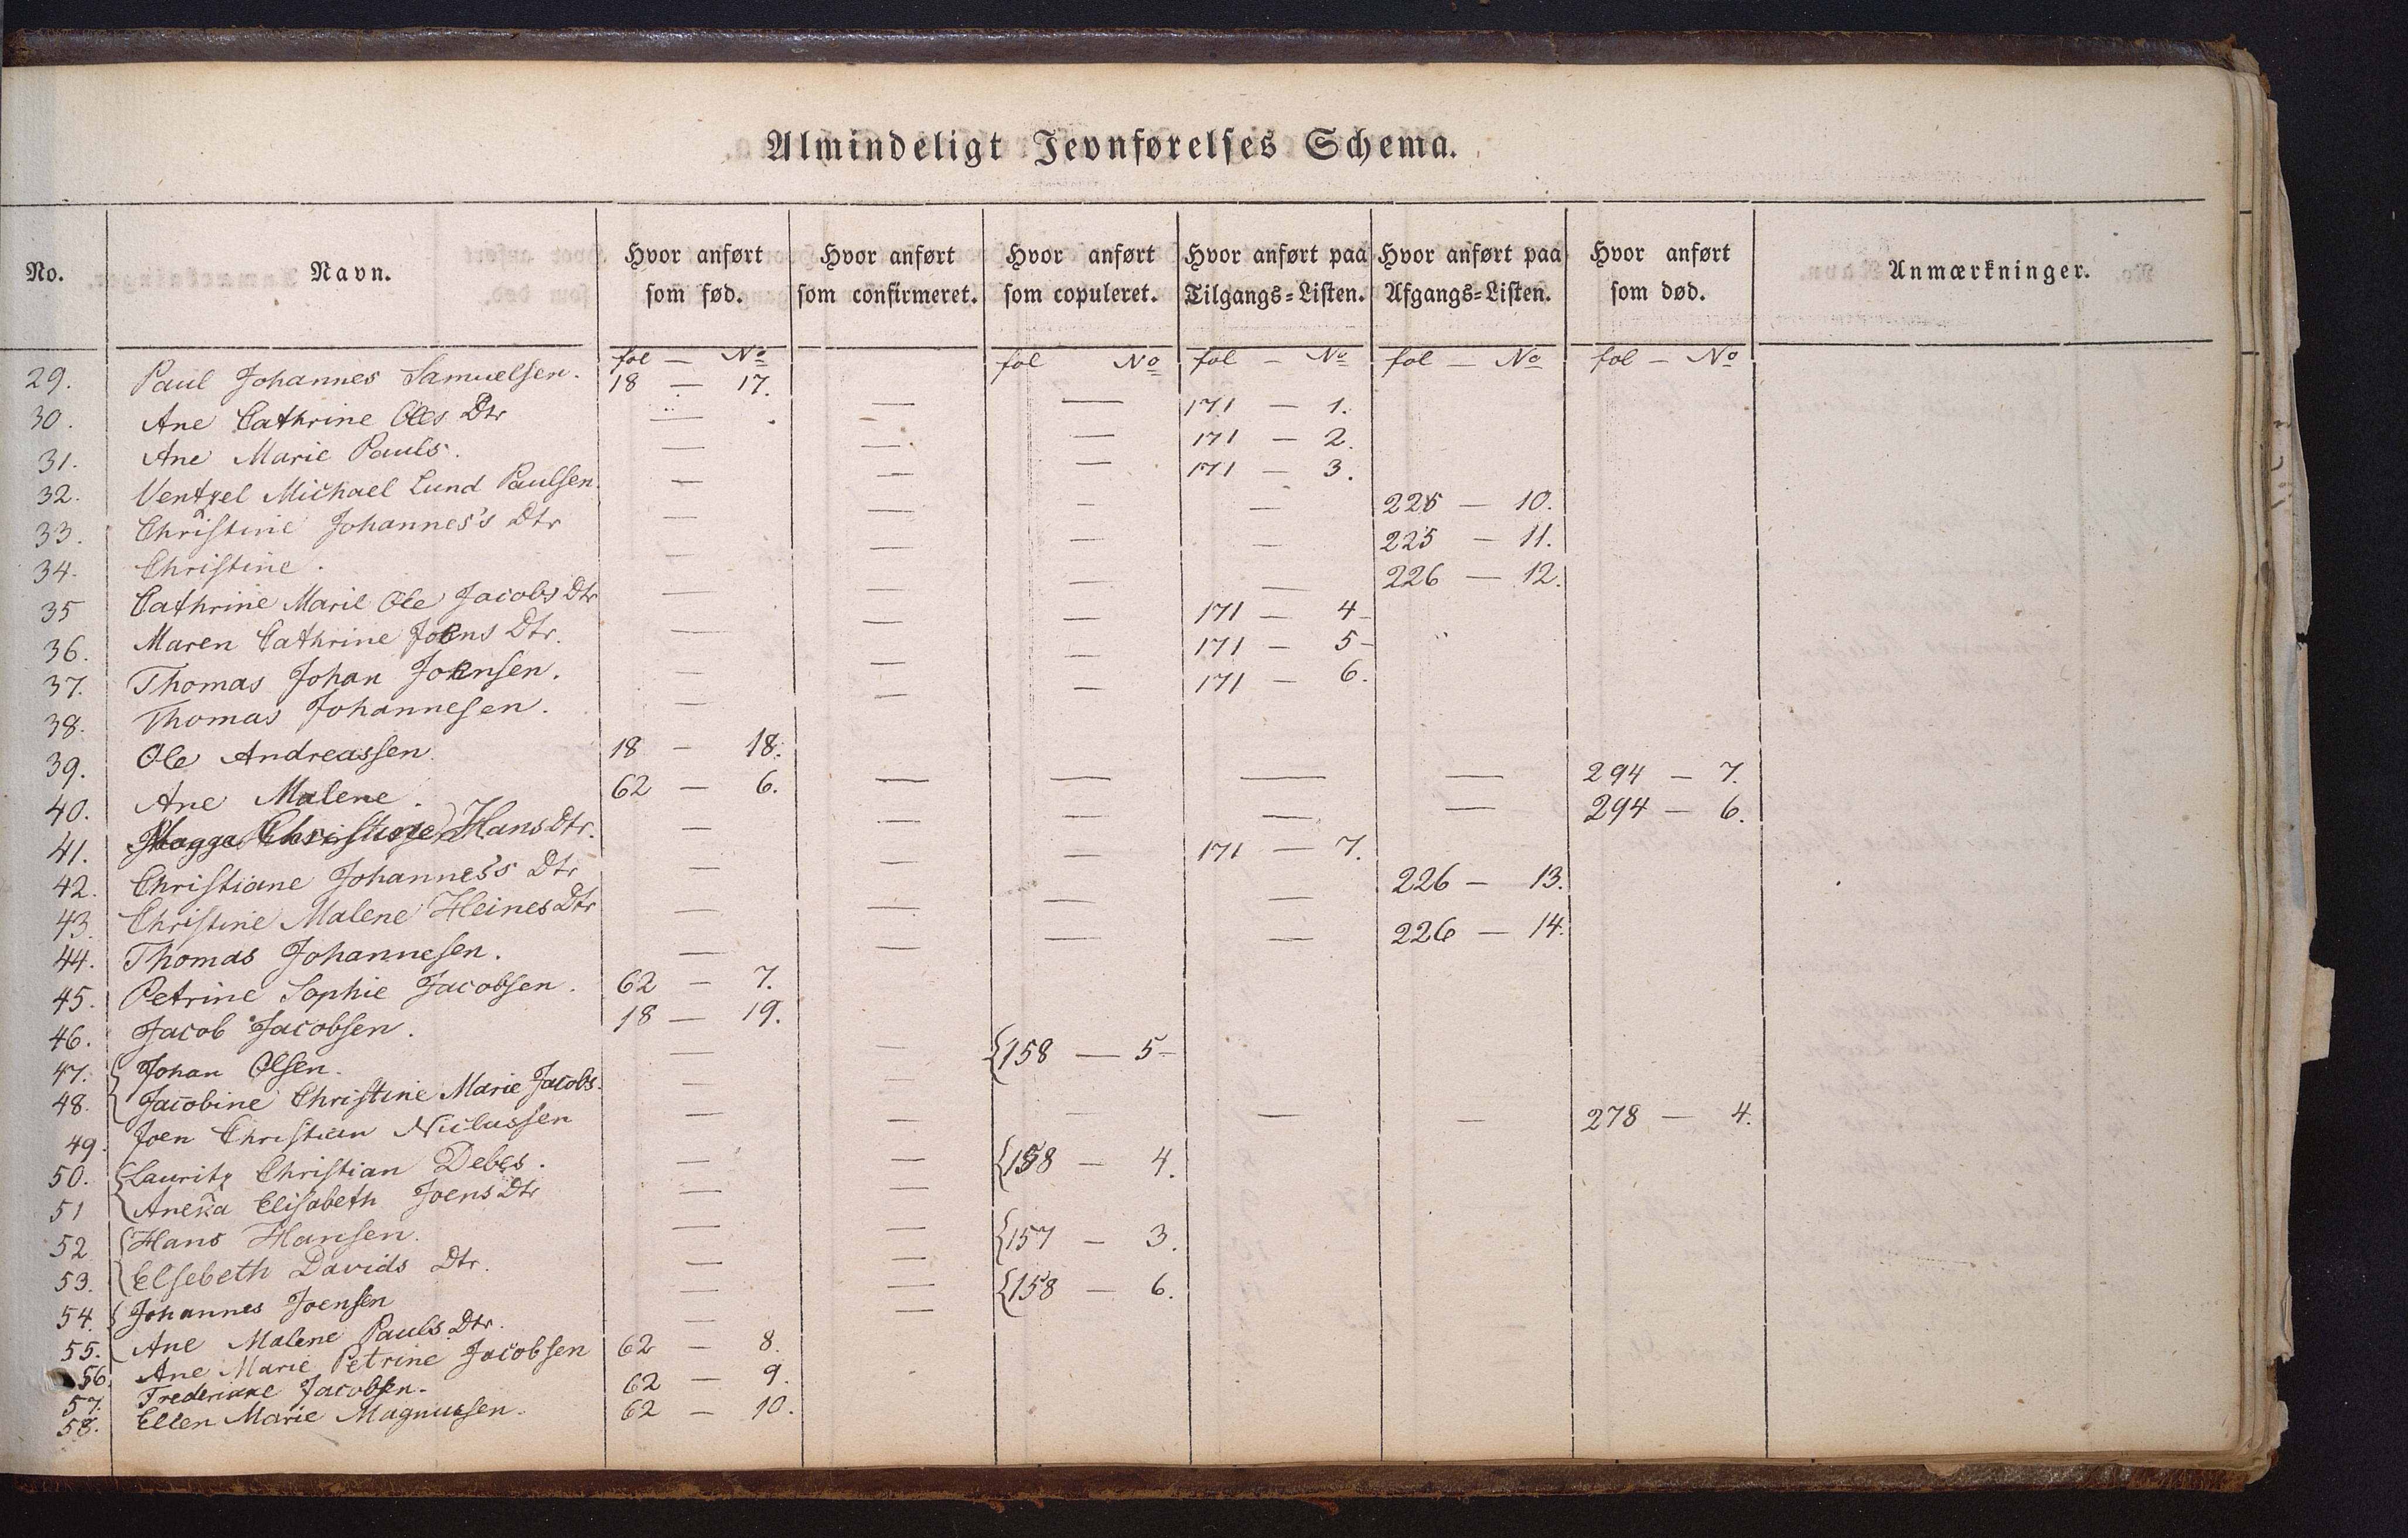 Almindeligt Jevnførelses Schema.
No. Navn. Hvor anført som fød. Hvor anført som confirmeret. Hvor anført som copuleret. Hvor anført paa Tilgangs-Listen. Hvor anført paa Afgangs-Listen. Hvor anført som død. Anmærkninger.
fol — No fol No fol — No fol — No fol — No
29. Paul Johannes Samuelsen. 18 — 17.
30. Ane Cathrine Oles Dtr — — — 171 — 1.
31. Ane Marie Pauls. — — — 171 — 2.
32. Ventzel Michael Lund Paulsen — — — 171 — 3.
33. Christine Johannes's Dtr — — — — 225 — 10.
34. Christine. — — — — 225 — 11.
35 Cathrine Marie Ole Jacobs Dtr — — — — 226 — 12.
36. Maren Cathrine Joens Dtr. — — — 171 — 4-
37. Thomas Johan Joensen. — — — 171 — 5-
38. Thomas Johannesen. — — — 171 — 6.
39. Ole Andreassen 18 — 18.
40. Ane Malene. 62 — 6. — — — — 294 — 7.
41. Christine Hans Dtr. — — — — — 294 — 6.
42. Christiane Johannes's Dtr — — — 171 — 7.
43. Christine Malene Heines Dtr — — — — 226 — 13.
44. Thomas Johannesen. — — — — 226 — 14.
45. Petrine Sophie Jacobsen. 62 — 7.
46. Jacob Jacobsen. 18 — 19.
47. { Johan Olsen. — — {158 — 5-
48. { Jacobine Christine Marie Jacobs. — —
49. Joen Christian Niclassen — — — — — 278 — 4.
50. { Lauritz Christian Debes. — — {158 — 4.
51 { Anena Elisabeth Joens Dtr — —
52 { Hans Hansen. — — {157 — 3.
53. { Elsebeth Davids Dtr. — —
54. { Johannes Joensen — — {158 — 6.
55. { Ane Malene Pauls Dtr. — —
56. Ane Marie Petrine Jacobsen 62 — 8.
57. Frederikke Jacobsen. 62 — 9.
58. Ellen Marie Magnussen. 62 — 10.